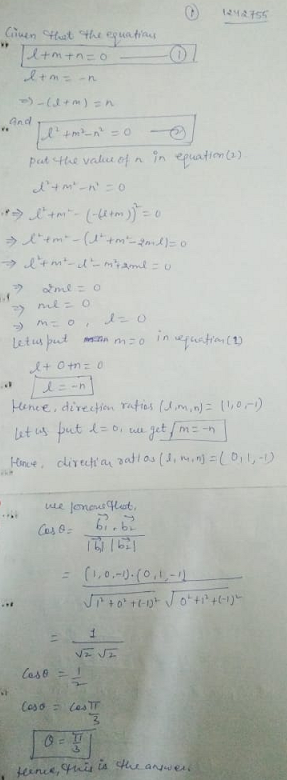 ① 1242755
Given that the equation
l+m+n=0 —— ①
l+m = -n
⇒ -(l+m) = n
and
l²+m²-n² = 0 —②
put the value of n in equation(2)
l²+m²-n² = 0
⇒ l²+m² - (-(l+m))² = 0
⇒ l²+m² - (l²+m²-2ml)=0
⇒ l²+m²-l²-m²+2ml = 0
⇒ 2ml = 0
⇒ ml = 0
⇒ m=0 , l=0
Let us put m=0 in equation(1)
l+0+n=0
l = -n
Hence, direction ratios (l,m,n) = (1,0,-1)
Let us put l=0, we get m=-n
Hence, direction ratios (l,m,n) = (0,1,-1)
we know that,
Cosθ = b₁→ . b₂→ / |b₁→| |b₂→|
= (1,0,-1).(0,1,-1) / √1²+0²+(-1)² √0²+1²+(-1)²
= 1 / √2 √2
Cosθ = 1/2
Cosθ = Cos π/3
θ = π/3
Hence, this is the answer.